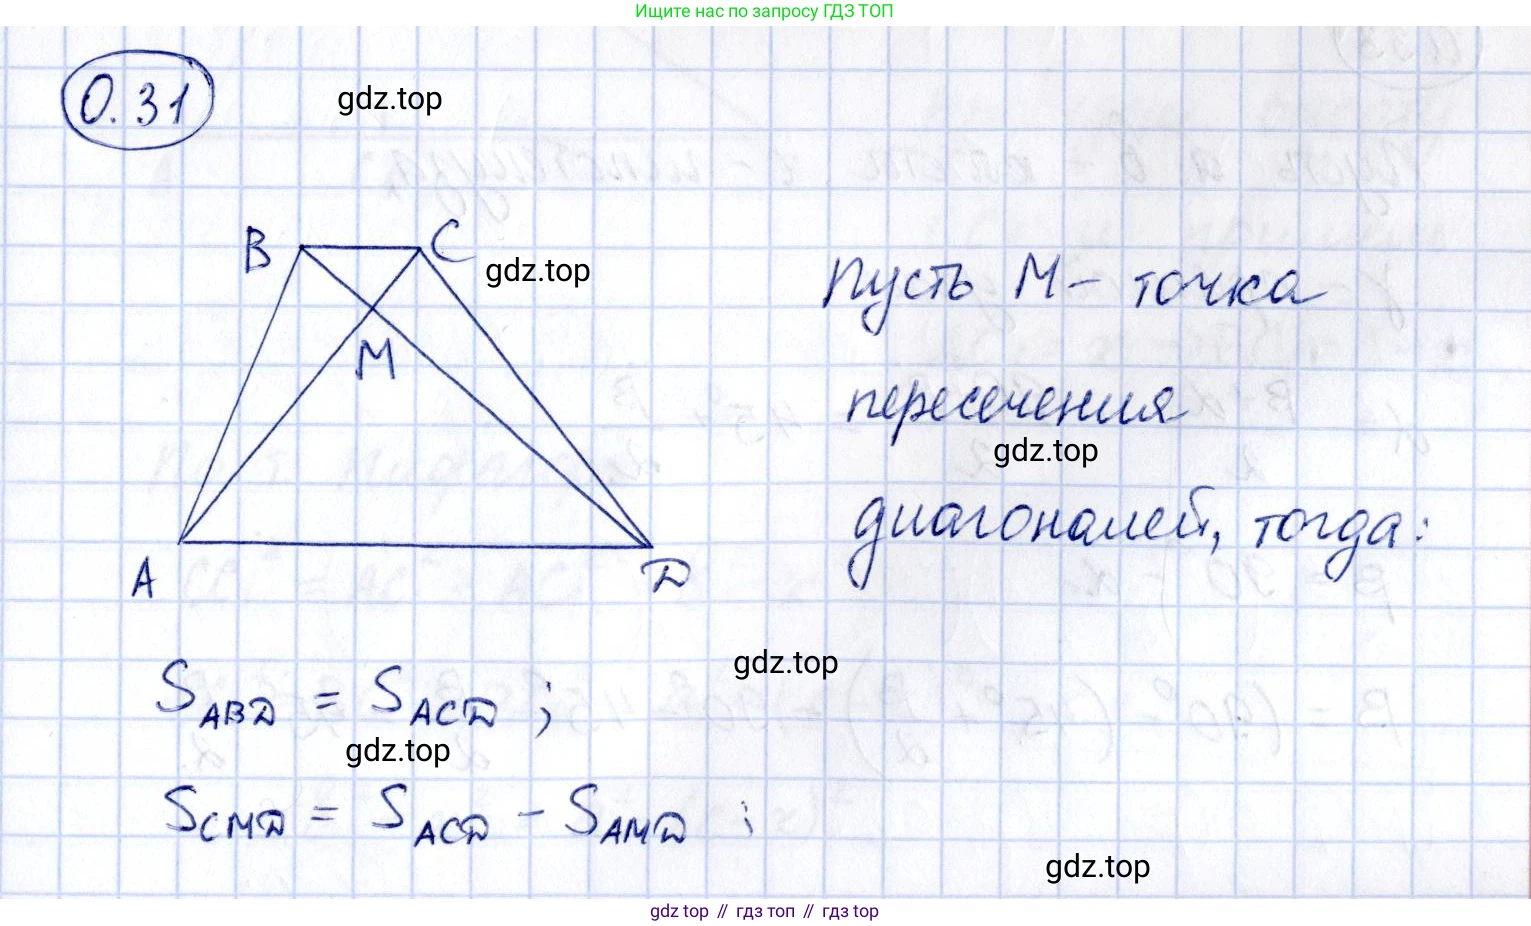 Ищите нас по запросу ГДЗ ТОП
0.31
gdz.top
B
C
gdz.top
Пусть М - точка
M
пересечения
gdz.top
диагоналей, тогда:
A
D
gdz.top
S_ABD = S_ACD ;
gdz.top
S_CMD = S_ACD - S_AMD ;
gdz.top
gdz top // гдз топ // гдз top